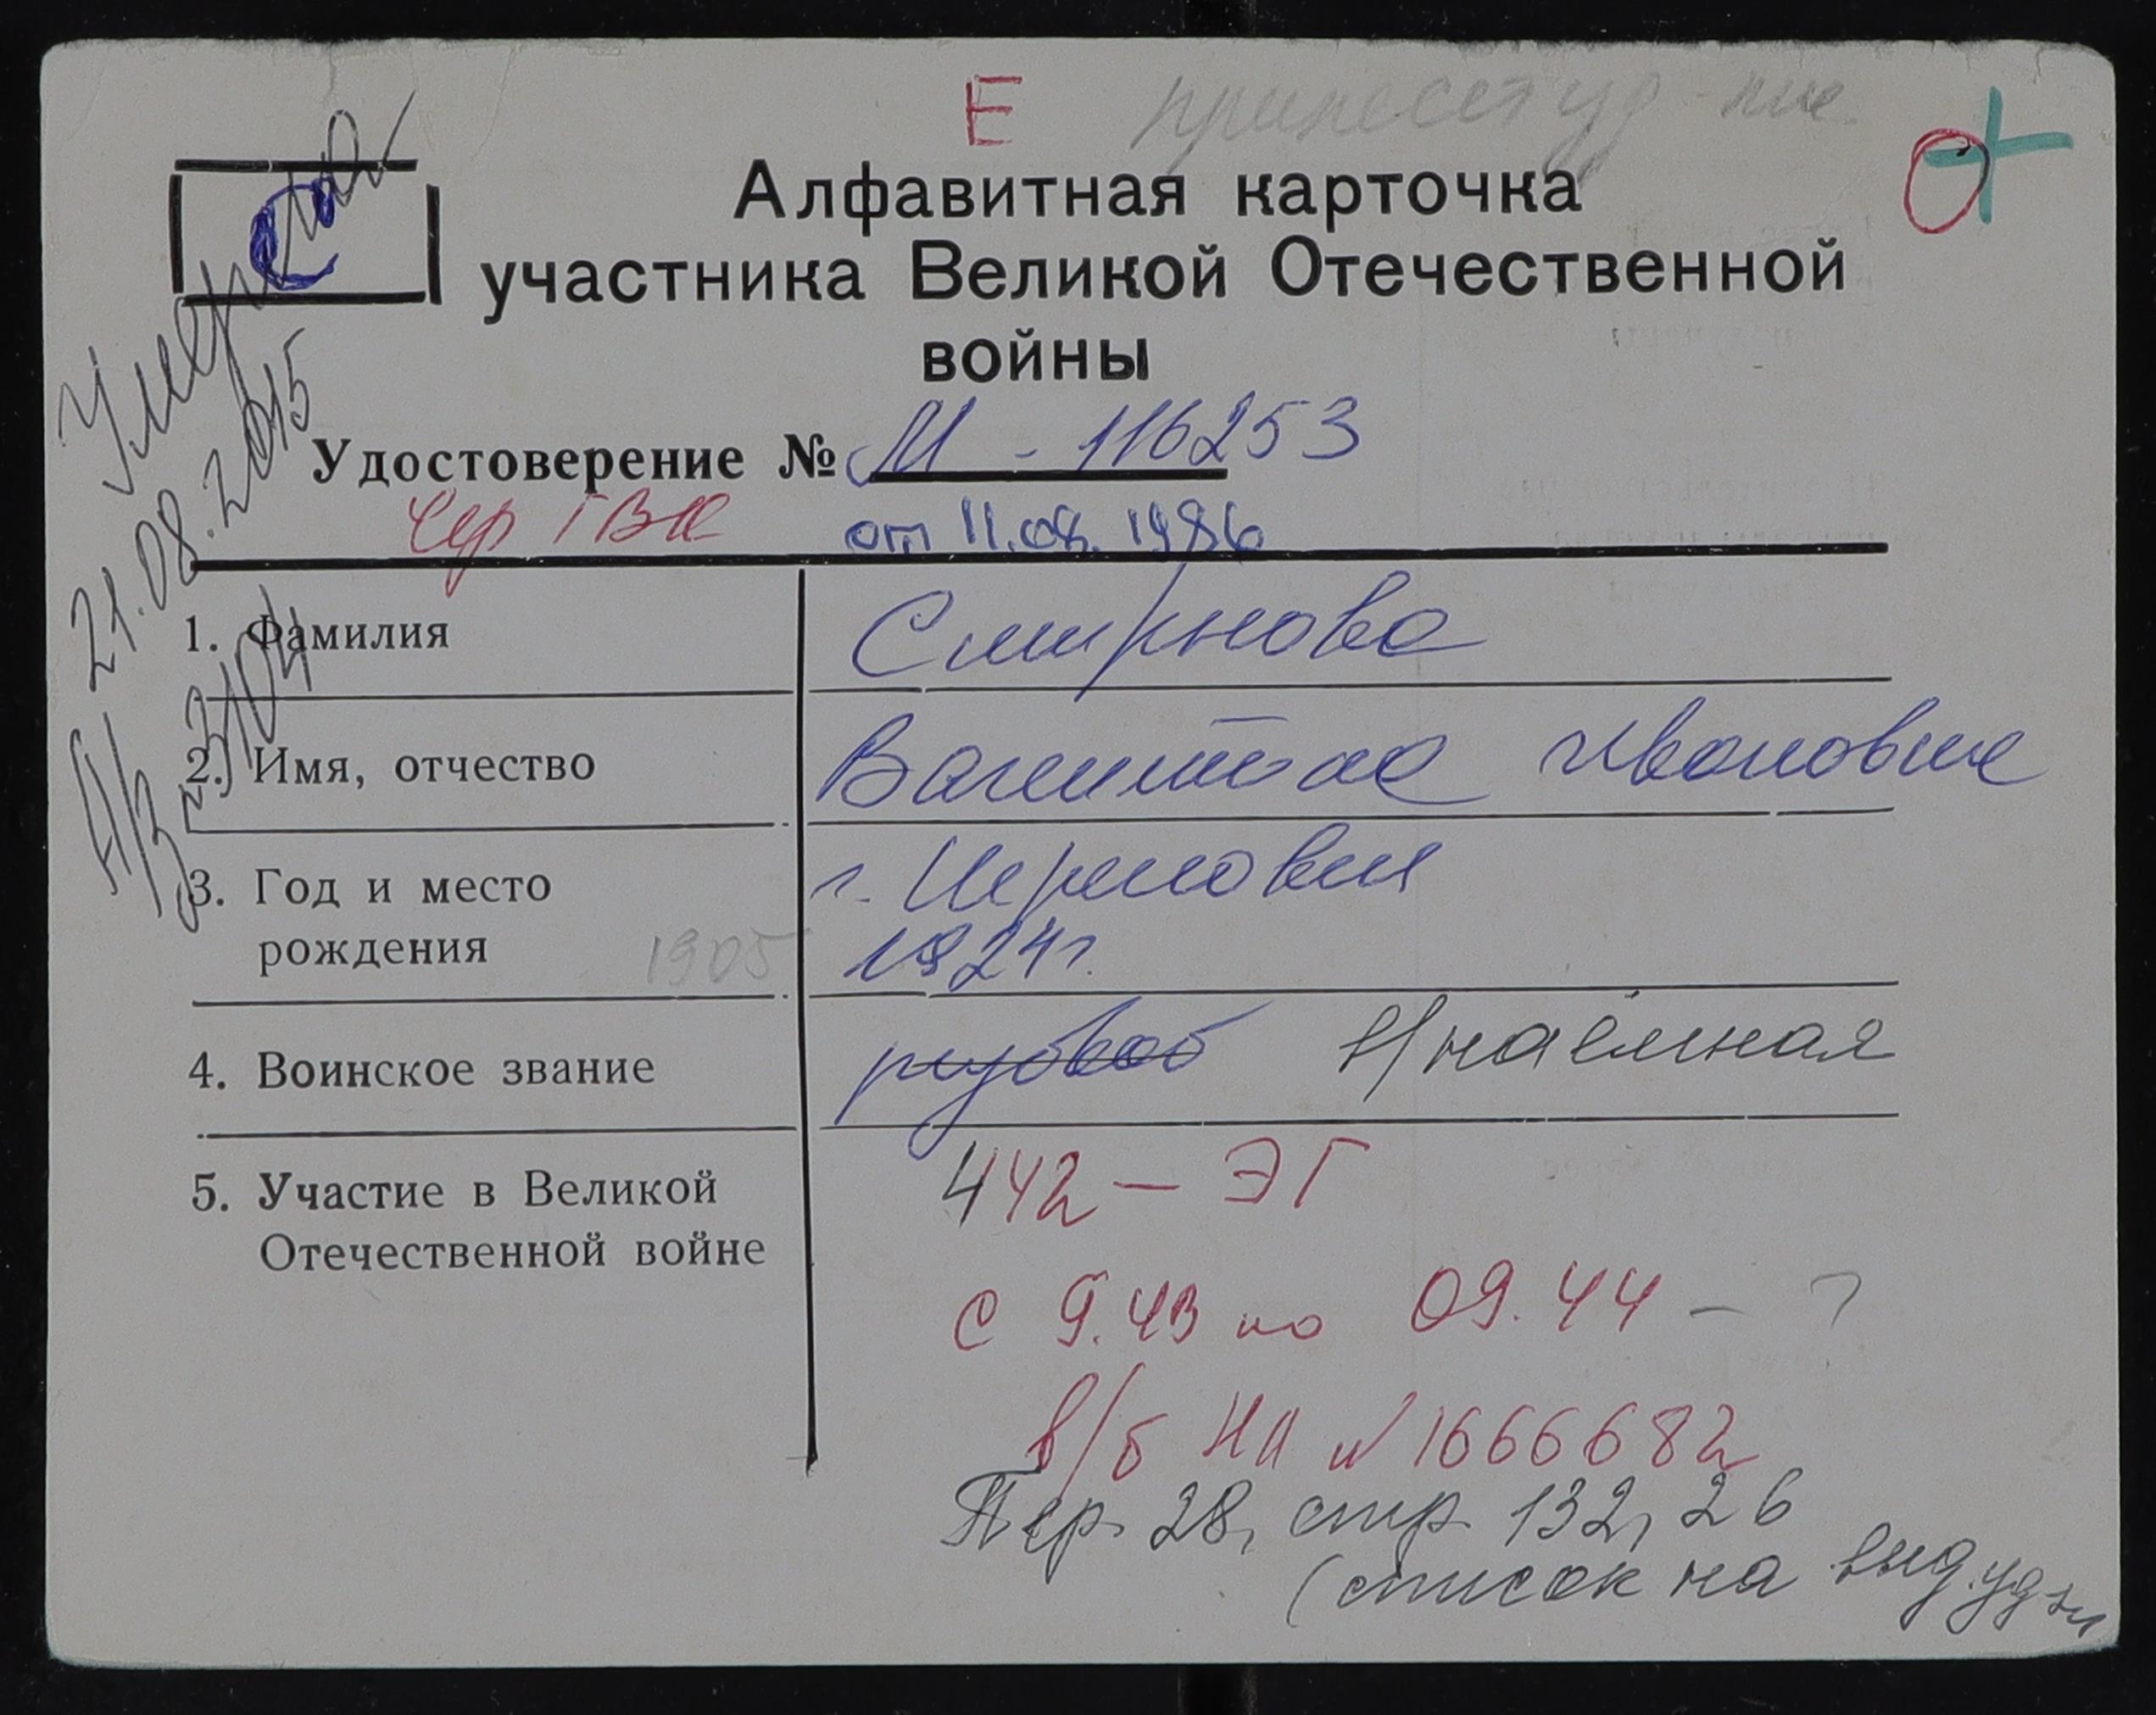 Е принесет уд-ние
С
Алфавитная карточка
участника Великой Отечественной
войны
Умерла
21.08.2015
А/З 3104
Удостоверение № М - 116253
Чер ГВК от 11.08.1986
1. Фамилия Смирнова
2. Имя, отчество Валентина Ивановна
3. Год и место г. Чернов
рождения 1905 1924г.
4. Воинское звание рядовой В/наёмная
5. Участие в Великой 442 - ЭГ
Отечественной войне
с 9.43 по 09.44 - ?
в/б НП № 1666682
Пер. 28, стр. 132, 26
(список на выд. уд-й